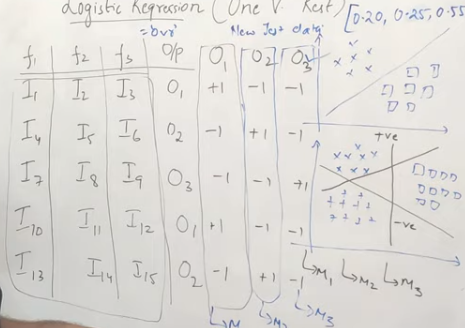 Logistic Regression (One V. Rest) [0.20, 0.25, 0.55
= ovr New Test data
f1 f2 f3 O/P O1 O2 O3
I1 I2 I3 O1 +1 -1 -1
I4 I5 I6 O2 -1 +1 -1
+ve
I7 I8 I9 O3 -1 -1 +1
I10 I11 I12 O1 +1 -1 -1
-ve
I13 I14 I15 O2 -1 +1 -1
M1 M2 M3
M M2 M3